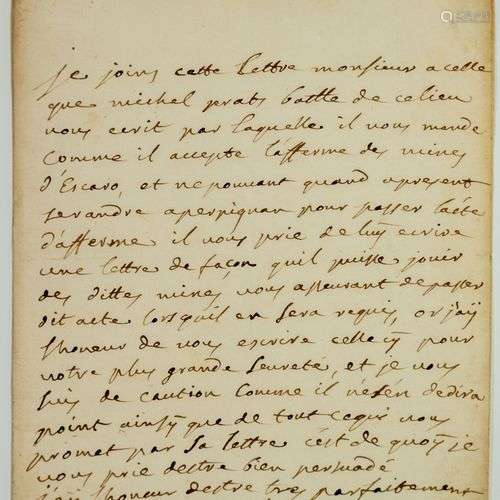 je joins cette lettre monsieur a celle
que michel prats battle de ce lieu
vous ecrit par laquelle il vous mande
Comme il accepte l'afferme des mines
d'Escaro, et ne pouvant quand apresent
se randre a perpignan pour passer l'acte
d'afferme il vous prie de luy ecrire
une lettre de façon quil puisse jouir
des dittes mines vous asseurant de passer
dit acte lorsquil en sera requis, or j'aÿ
lhoneur de vous escrire celle cy pour
votre plus grande seureté, et je vous
suis de caution Comme il ne sen dedira
point ainsy que de tout cequi vous
promet par sa lettre c'est de quoy je
vous prie destre bien persuadé
j'ai lhoneur destre tres parfaitement